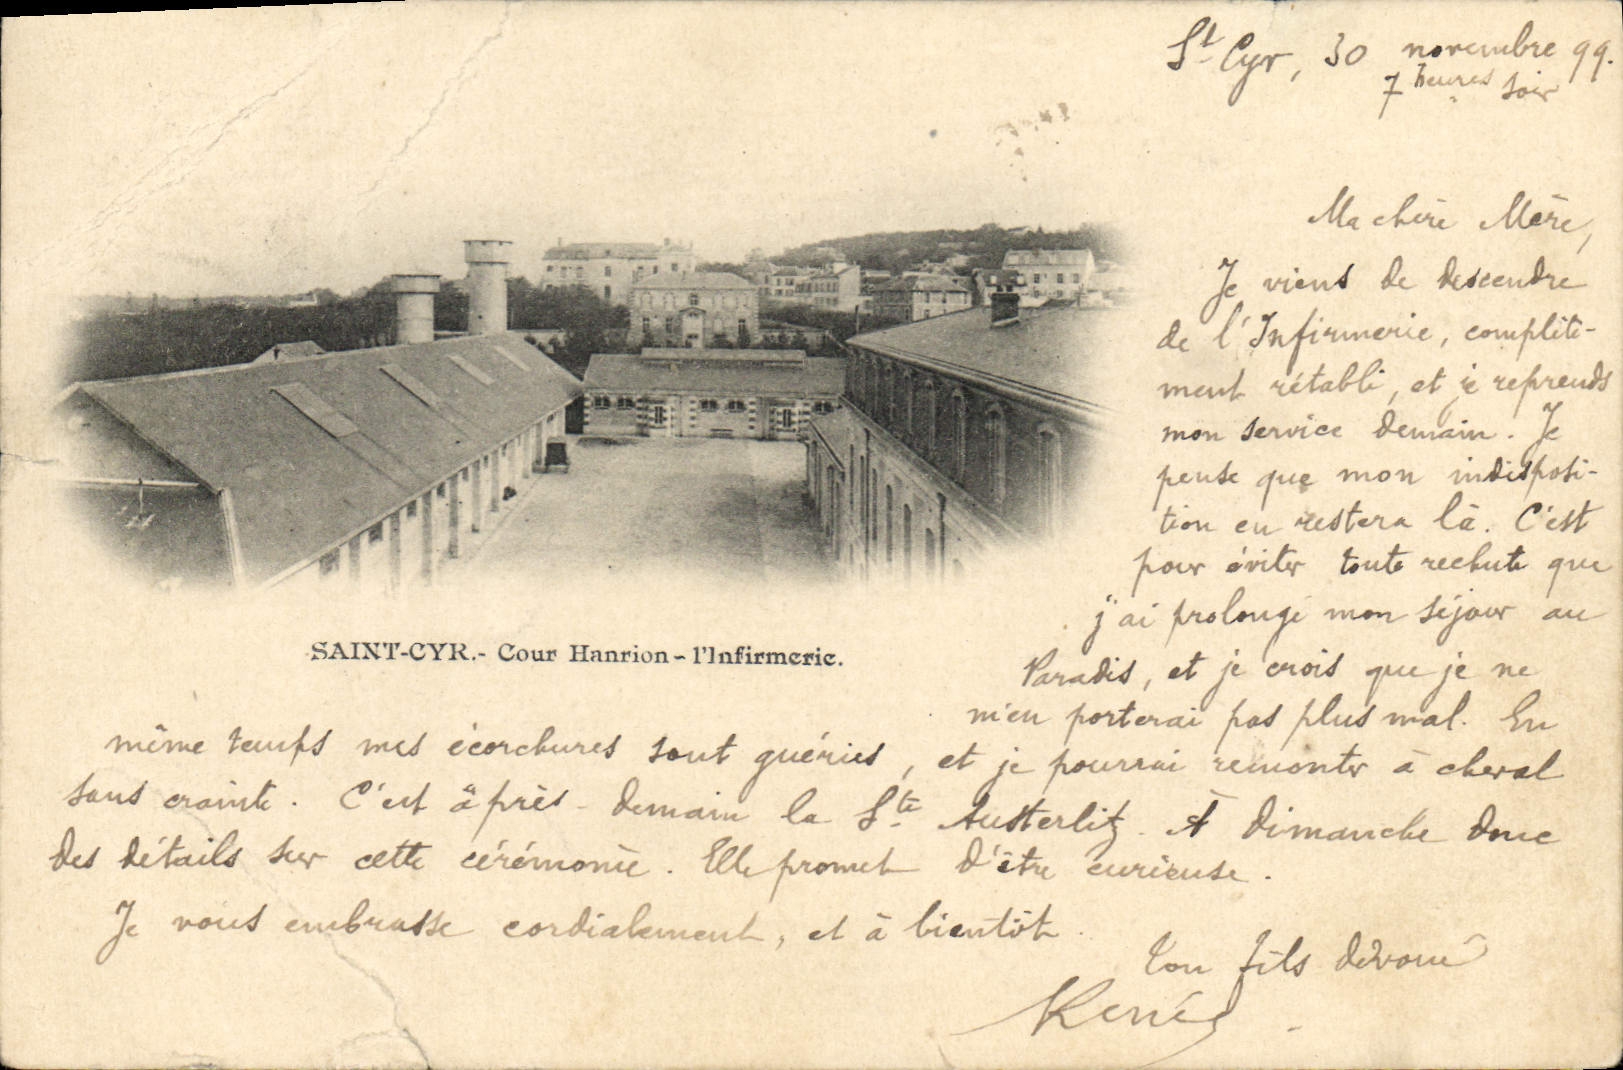 St Cyr, 30 novembre 99.
7 heures soir
Ma chère Mère,
Je viens de descendre
de l'Infirmerie, complète-
ment rétabli, et je reprends
mon service demain. Je
pense que mon indisposi-
tion en restera là. C'est
pour éviter toute rechute que
j'ai prolongé mon séjour au
Paradis, et je crois que je ne
m'en porterai pas plus mal. En
SAINT-CYR.- Cour Hanrion - l'Infirmerie.
même temps mes écorchures sont guéries, et je pourrai remonter à cheval
sans crainte. C'est après-demain la Ste Austerlitz. A dimanche donc
des détails sur cette cérémonie. Elle promet d'être curieuse.
Je vous embrasse cordialement, et à bientôt.
Ton fils dévoué
René